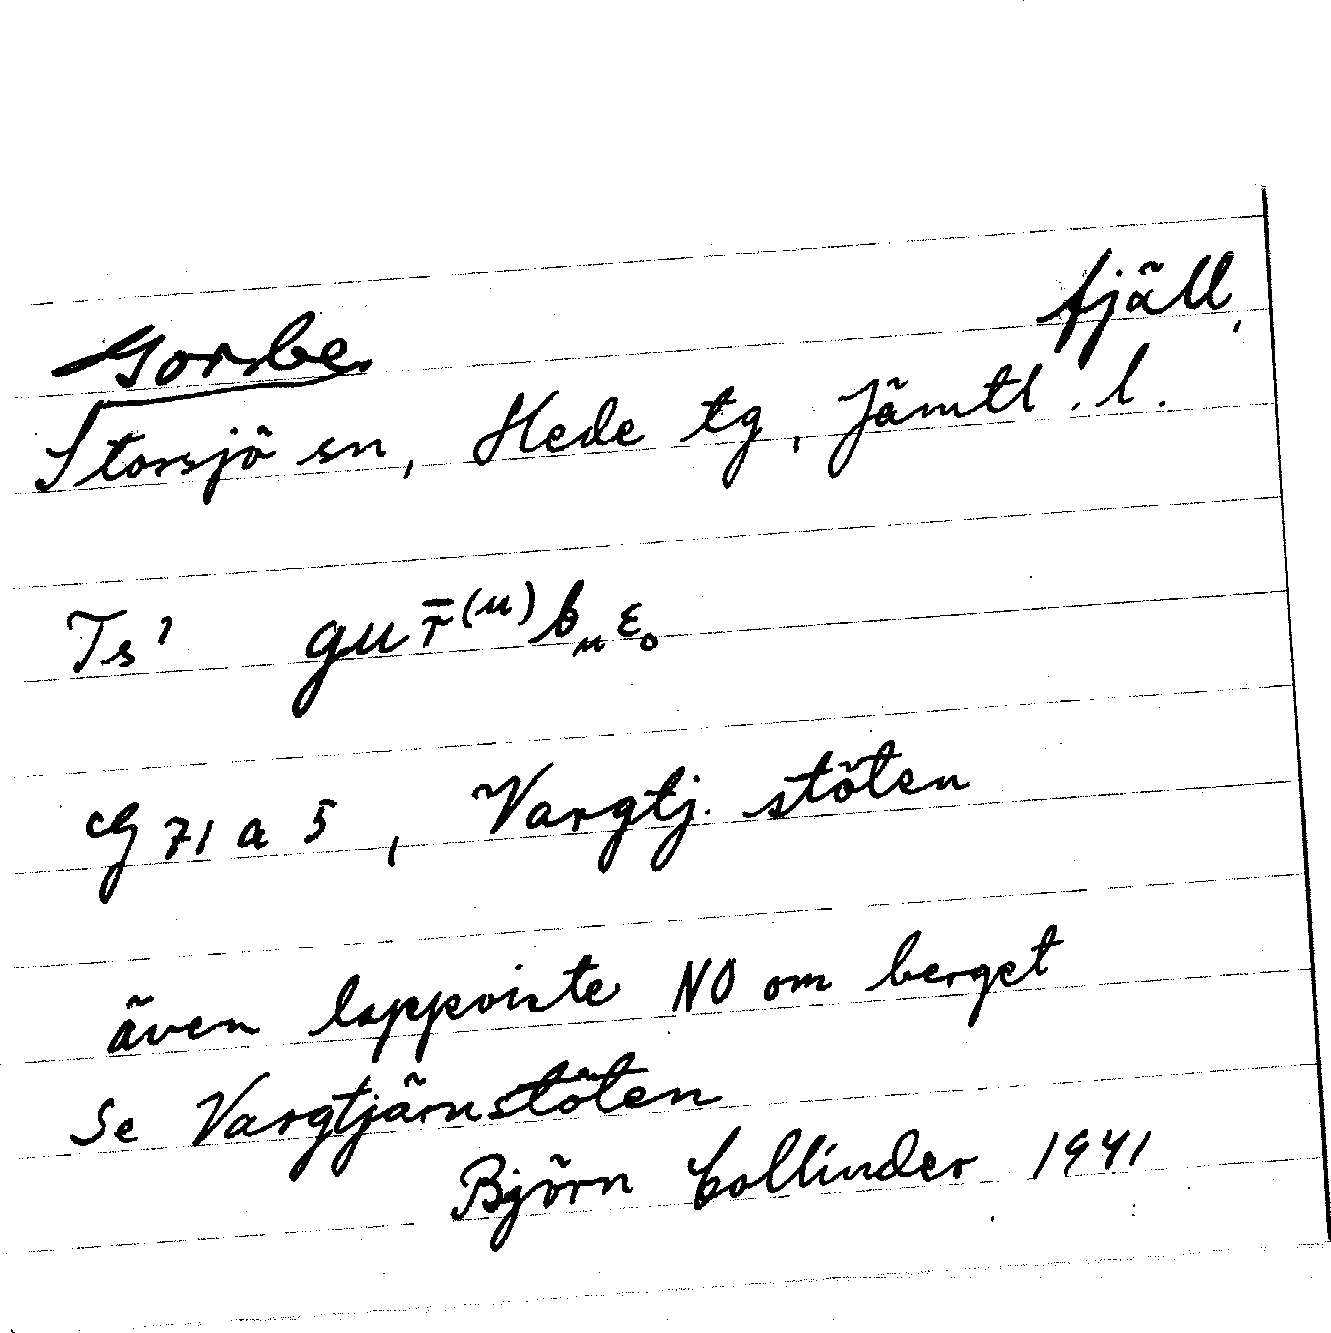 Gorrbe. fjäll,
Storsjö sn, Hede tg, Jämtl. l.
Ts' gur̄⁽ᵘ⁾bᵤɛₒ
G 71 a 5, Vargtj. stöten
även lappviste NO om berget
Se Vargtjärnstöten
Björn Collinder 1941